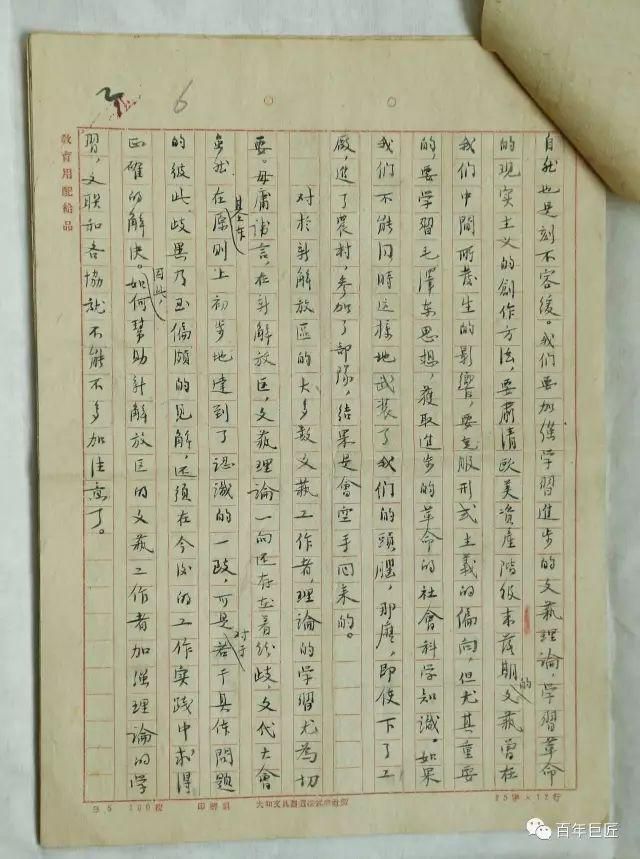 6
自然也是刻不容緩。我们要加强学習進步的文藝理論，学習革命
的现实主义的創作方法，要肅清欧美資產階级末落期的文藝曾在
我们中間所發生的影響，要克服形式主義的偏向，但尤其重要
的，要学習毛澤東思想，獲取進步的革命的社會科学知識。如果
我们不能同時这樣地武装了我们的頭腦，那麽，即使下了工
廠，進了農村，参加了部隊，结果是會空手回来的。
对於新解放區的大多数文藝工作者，理論的学習尤为切
要。毋庸諱言，在新解放区，文藝理論一向还存在着纷歧，文代大會
虽然在基本原则上初步地達到了認識的一致，可是对于若干具体問題
的彼此歧異乃至偏頗的见解，还须在今後的工作实践中求得
正確的解决。因此，如何幫助新解放区的文藝工作者加强理論的学
習，文联和各協就不能不多加注意了。
教育用配給品
25字×12行
百年巨匠